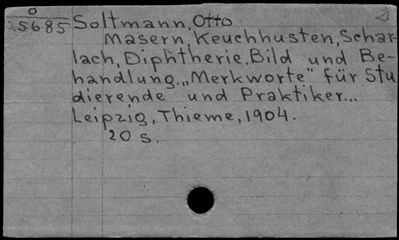 O
25685 Soltmann, Otto
Masern, Keuchhusten, Schar-
lach, Diphtherie. Bild und Be-
handlung. „Merkworte" für Stu
dierende und Praktiker...
Leipzig, Thieme, 1904.
20 s.